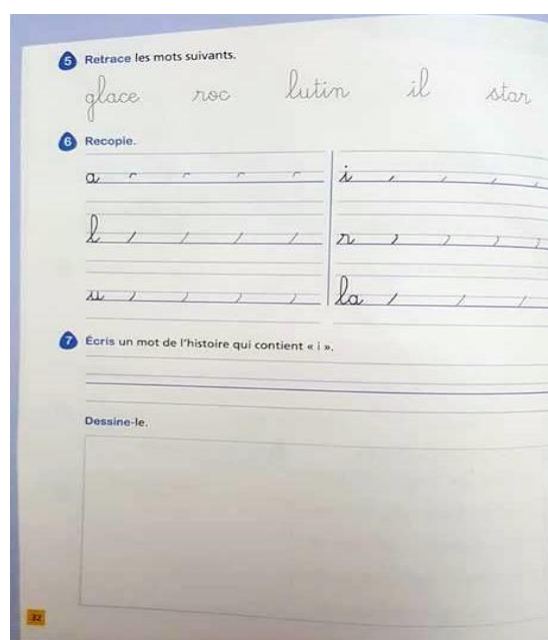 5 Retrace les mots suivants.
glace roc lutin il star
6 Recopie.
a i
l r
u la
7 Écris un mot de l'histoire qui contient « i ».
Dessine-le.
32